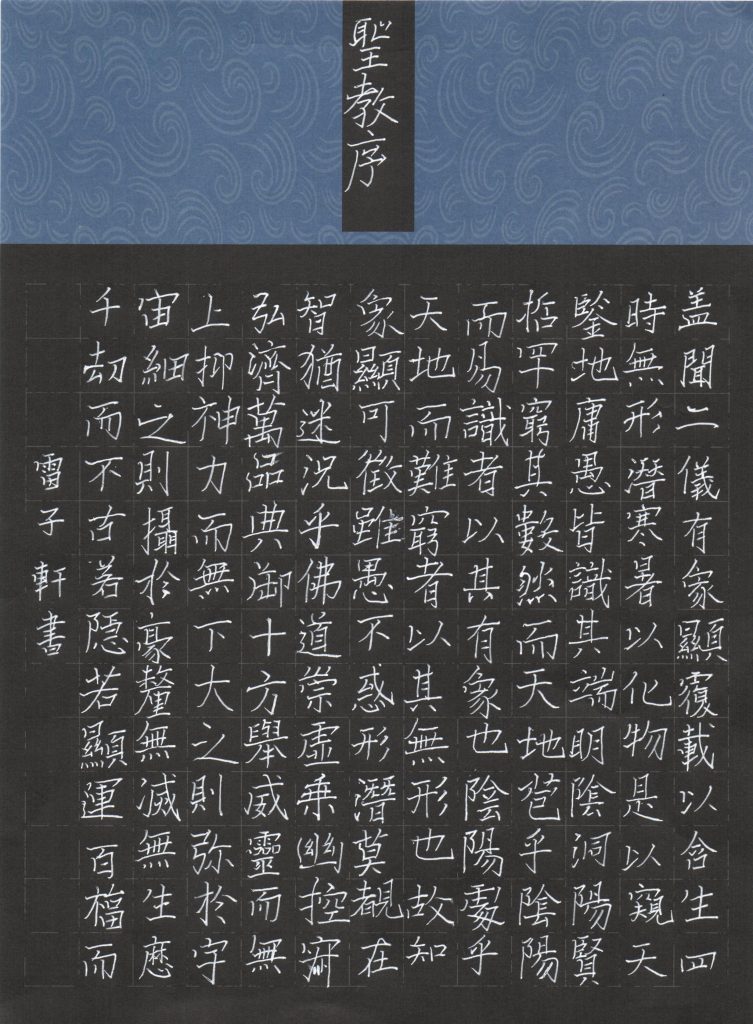 聖教序
盖聞二儀有象顯覆載以含生四
時無形潛寒暑以化物是以窺天
鑒地庸愚皆識其端明陰洞陽賢
哲罕窮其數然而天地苞乎陰陽
而易識者以其有象也陰陽處乎
天地而難窮者以其無形也故知
象顯可徵雖愚不惑形潛莫覩在
智猶迷況乎佛道崇虛乗幽控寂
弘濟萬品典御十方舉威靈而無
上抑神力而無下大之則弥於宇
宙細之則攝於豪釐無滅無生歷
千劫而不古若隱若顯運百福而
雷子軒書